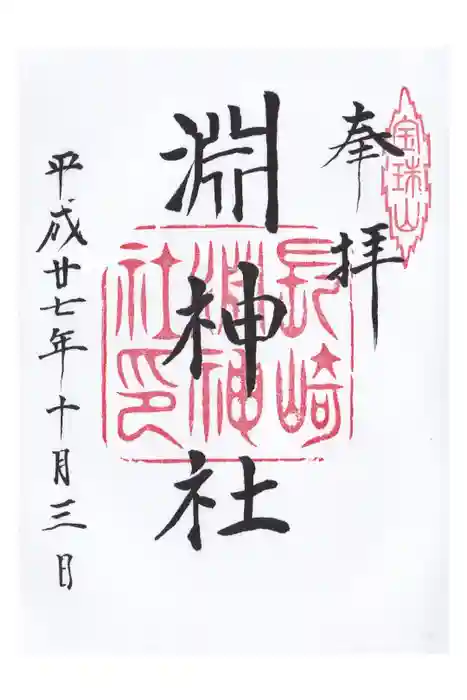 奉拝
宝珠山
淵神社
長崎
淵神
社印
平成廿七年十月三日